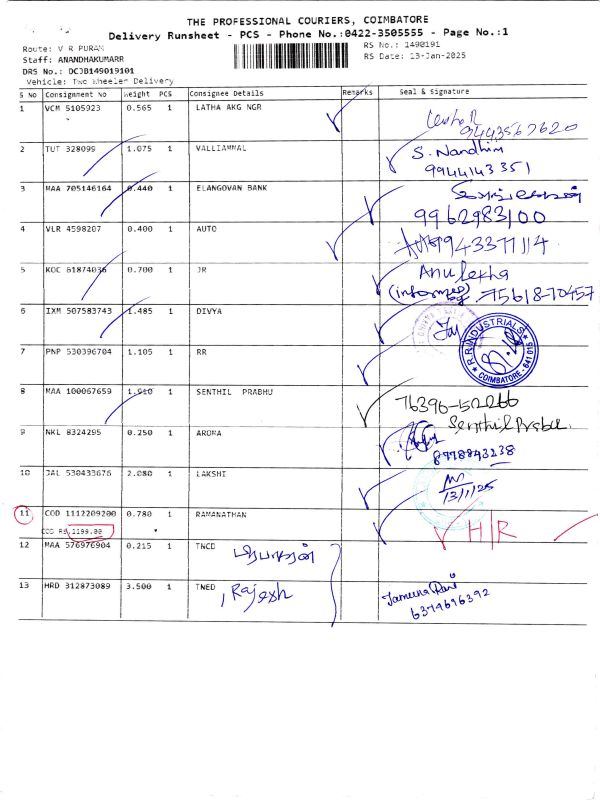 THE PROFESSIONAL COURIERS, COIMBATORE
Delivery Runsheet - PCS - Phone No.:0422-3505555 - Page No.:1
Route: V R PURAM
RS No.: 1490191
Staff: ANANDHAKUMARR
RS Date: 13-Jan-2025
DRS No.: DCJB149019101
Vehicle: Two Wheeler Delivery
S No Consignment No Weight PCS Consignee Details Remarks Seal & Signature
1 VCM 5105923 0.565 1 LATHA AKG NGR
9443567620
2 TUT 328099 1.075 1 VALLIAMMAL S. Nandhini
9944143351
3 MAA 705146164 0.440 1 ELANGOVAN BANK
9962983100
4 VLR 4598207 0.400 1 AUTO 9433771114
5 KOC 61874036 0.700 1 JR Anulekha
(informed) 75618-70457
6 IXM 507583743 1.485 1 DIVYA
R.R. INDUSTRIALS COIMBATORE - 641 015
7 PNP 530396704 1.105 1 RR
8 MAA 100067659 1.910 1 SENTHIL PRABHU 76396-52266
Senthil Prabu
9 NKL 8324295 0.250 1 AROMA
8978843238
10 JAL 530433676 2.080 1 LAKSHI
13/1/25
11 COD 1112209200 0.780 1 RAMANATHAN H/R
COD RS.1199.00
12 MAA 576976904 0.215 1 TNCD
13 HRD 312873089 3.500 1 TNED Rajesh Jamuna Rani
6379696392